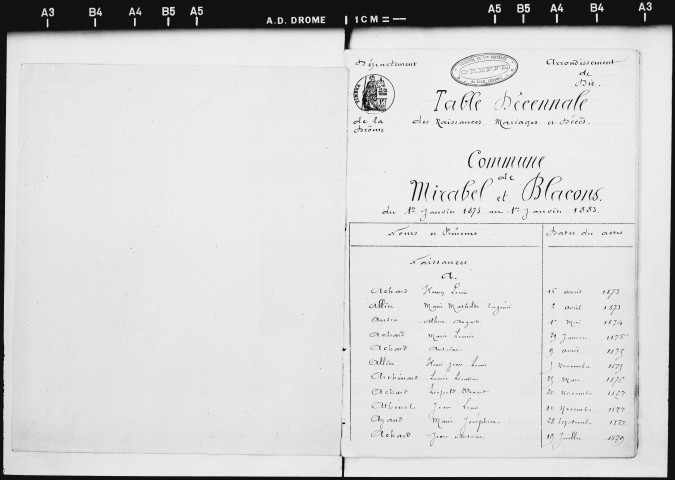 A3 B4 A4 B5 A5 A.D. DROME 1CM= A5 B5 A4 B4 A3
Département
de la
Drôme
GREFFE
TIMBRE
Arrondissement
de
Die.
Table Décennale
des Naissances, Mariages et Décès.
Commune
de
Mirabel et Blacons.
du 1er Janvier 1873 au 1er Janvier 1883.
Noms et Prénoms Dates des actes
Naissances
A.
Achard Henry Louis 16 avril 1873
Allier Marie Mathilde 2 avril 1873
Albert August 1er Mai 1874
Achard Marie Louise 29 Janvier 1875
Achard Antoine 9 avril 1875
Allier Henri Jean Louis 7 Novembre 1875
Archinard Louis 25 Mars 1876
Achard Léopold 20 Novembre 1877
Athenol Jean Louis 10 Novembre 1877
Marie Joséphine 28 Septembre
Achard Jean Antoine 19 Juillet 1879